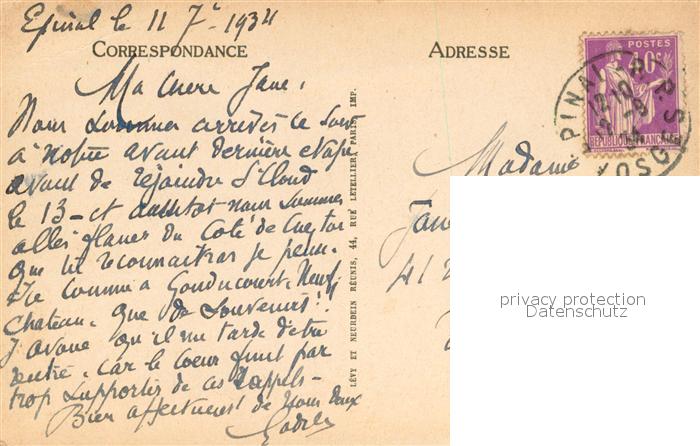 Epinal le 11 7e 1934
CORRESPONDANCE
ADRESSE
Ma chere Jane,
Nous sommes arrivés ce soir
à notre avant dernière etape
avant de rejoindre St Cloud
le 13 - et aussitot nous sommes
allés flaner du coté de
que tu reconnaitras je pense.
comme à Gondrecourt. Neuf
Chateau. que de souvenirs!
J'avoue qu'il me tarde d'etre
rentré. car le coeur finit par
trop supporter de ces rappels -
Bien affectueust de nous deux
LÉVY ET NEURDEIN RÉUNIS, 44, RUE LETELLIER, PARIS. IMP.
POSTES
40c
REPUBLIQUE FRANÇAISE
EPINAL R.P.
VOSGES
12 10
Madame
41
privacy protection
Datenschutz